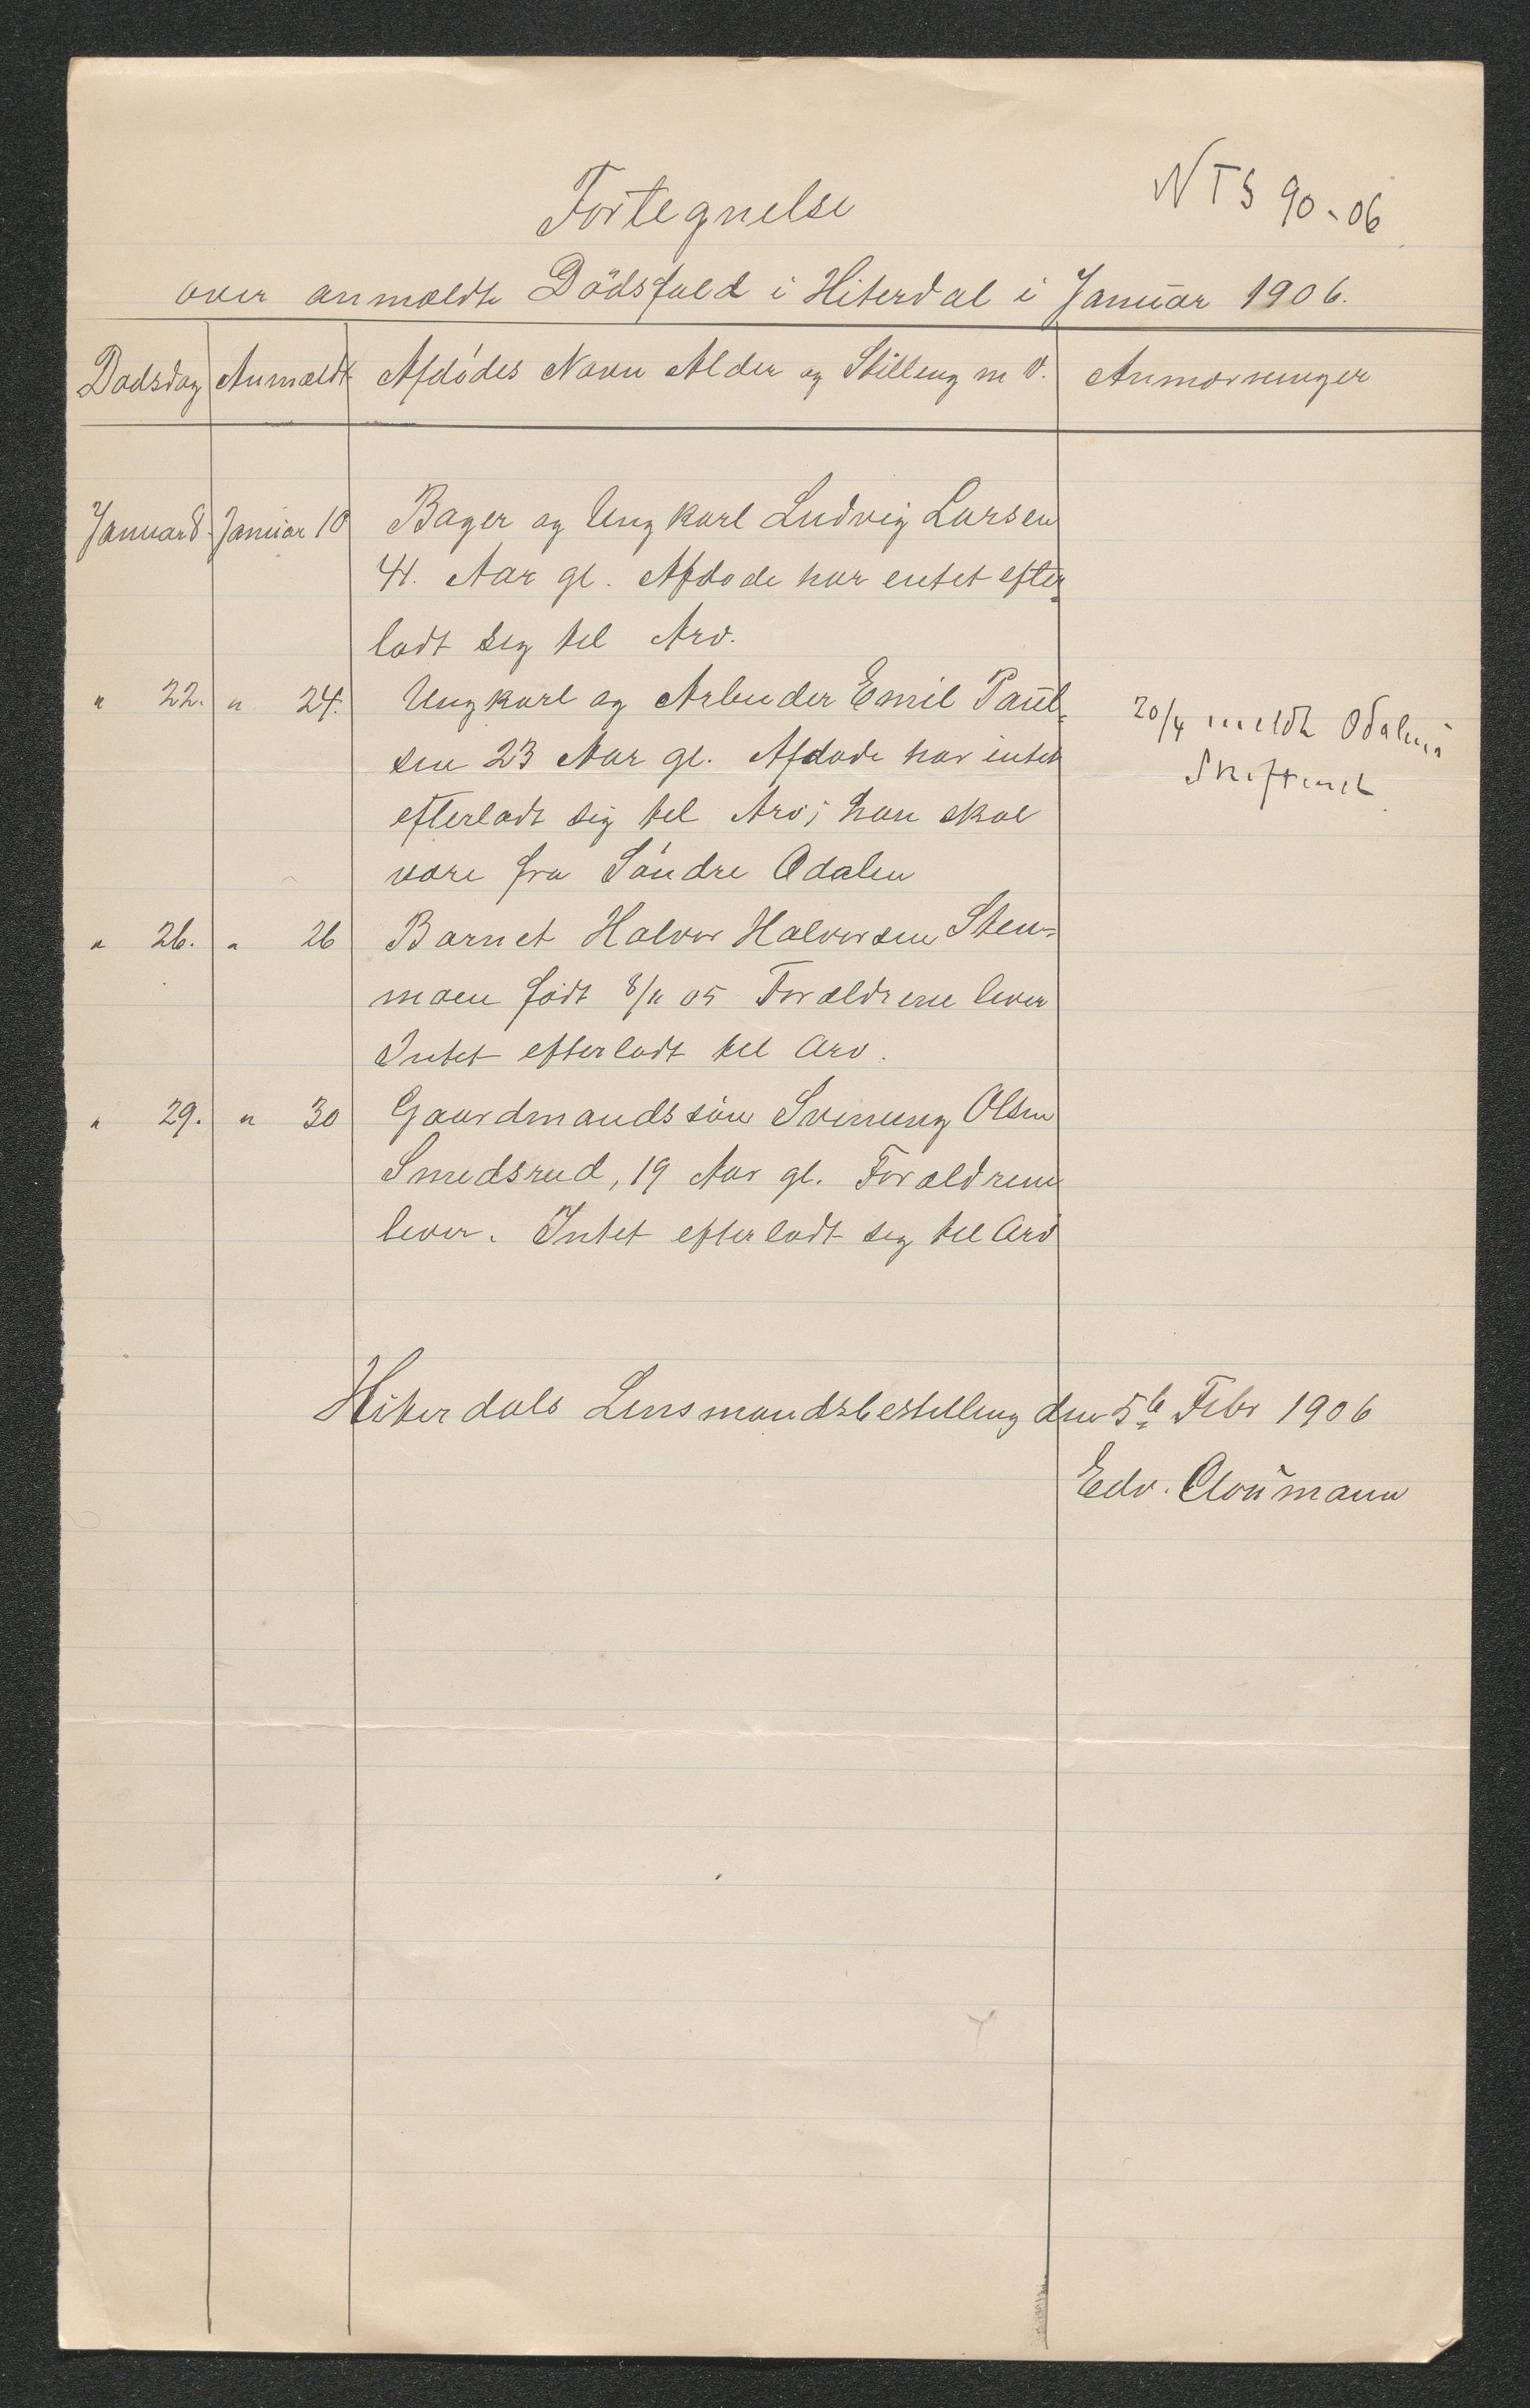 NTS 90-06
Fortegnelse
over anmeldte Dödsfald i Hiterdal i Januar 1906.
Dødsdag Anmeldt Afdødes Navn Alder og Stilling m V. Anmærkninger
Januar 8. Januar 10 Bager og Ungkarl Ludvig Larsen
41. Aar gl. Afdøde har entet efter=
ladt sig til Arv.
" 22. " 24. Ungkarl og Arbeider Emil Paul=
sen 23 Aar gl. Afdøde har intet
20/4 meldt Odalens
Skifteret
efterladt sig til Arv; han skal
være fra Söndre Odalen
" 26. " 26 Barnet Halvor Halvorsen Sten=
moen født 8/11 05 Forældrene lever
Intet efterladt til Arv.
" 29. " 30 Gaardmandssøn Svenung Olsen
Smedsrud, 19 Aar gl. Forældrene
lever. Intet efterladt sig til Arv
Hiterdals Lensmandsbestilling den 5te Febr 1906
Edv. Cloumann